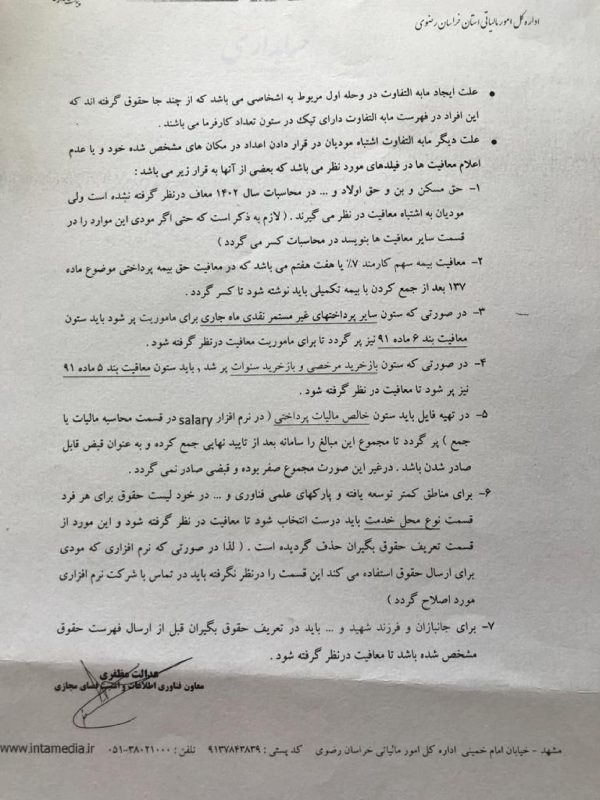 اداره کل امور مالیاتی استان خراسان رضوی
● علت ایجاد مابه التفاوت در وحله اول مربوط به اشخاصی می باشد که از چند جا حقوق گرفته اند که
این افراد در فهرست مابه التفاوت دارای تیک در ستون تعداد کارفرما می باشند .
● علت دیگر مابه التفاوت اشتباه مودیان در قرار دادن اعداد در مکان های مشخص شده خود و یا عدم
اعلام معافیت ها در فیلدهای مورد نظر می باشد که بعضی از آنها به قرار زیر می باشد :
۱- حق مسکن و بن و حق اولاد و ... در محاسبات سال ۱۴۰۲ معاف درنظر گرفته نشده است ولی
مودیان به اشتباه معافیت در نظر می گیرند . ( لازم به ذکر است که حتی اگر مودی این موارد را در
قسمت سایر معافیت ها بنویسد در محاسبات کسر می گردد )
۲- معافیت بیمه سهم کارمند ۷٪ یا هفت هفتم می باشد که در معافیت حق بیمه پرداختی موضوع ماده
۱۳۷ بعد از جمع کردن با بیمه تکمیلی باید نوشته شود تا کسر گردد .
۳- در صورتی که ستون سایر پرداختهای غیر مستمر نقدی ماه جاری برای ماموریت پر شود باید ستون
معافیت بند ۶ ماده ۹۱ نیز پر گردد تا برای ماموریت معافیت درنظر گرفته شود .
۴- در صورتی که ستون بازخرید مرخصی و بازخرید سنوات پر شد , باید ستون معافیت بند ۵ ماده ۹۱
نیز پر شود تا معافیت در نظر گرفته شود .
۵- در تهیه فایل باید ستون خالص مالیات پرداختی ( در نرم افزار salary در قسمت محاسبه مالیات یا
جمع ) پر گردد تا مجموع این مبالغ را سامانه بعد از تایید نهایی جمع کرده و به عنوان قبض قابل
صادر شدن باشد . درغیر این صورت مجموع صفر بوده و قبضی صادر نمی گردد .
۶- برای مناطق کمتر توسعه یافته و پارکهای علمی فناوری و ... در خود لیست حقوق برای هر فرد
قسمت نوع محل خدمت باید درست انتخاب شود تا معافیت در نظر گرفته شود و این مورد از
قسمت تعریف حقوق بگیران حذف گردیده است . ( لذا در صورتی که نرم افزاری که مودی
برای ارسال حقوق استفاده می کند این قسمت را درنظر نگرفته باید در تماس با شرکت نرم افزاری
مورد اصلاح گردد )
۷- برای جانبازان و فرزند شهید و ... باید در تعریف حقوق بگیران قبل از ارسال فهرست حقوق
مشخص شده باشد تا معافیت درنظر گرفته شود .
عدالت مظفری
معاون فناوری اطلاعات و امنیت فضای مجازی
مشهد - خیابان امام خمینی اداره کل امور مالیاتی خراسان رضوی کد پستی : ۹۱۳۷۸۴۳۸۳۹ تلفن : ۳۸۰۲۱۰۰۰-۰۵۱ www.intamedia.ir